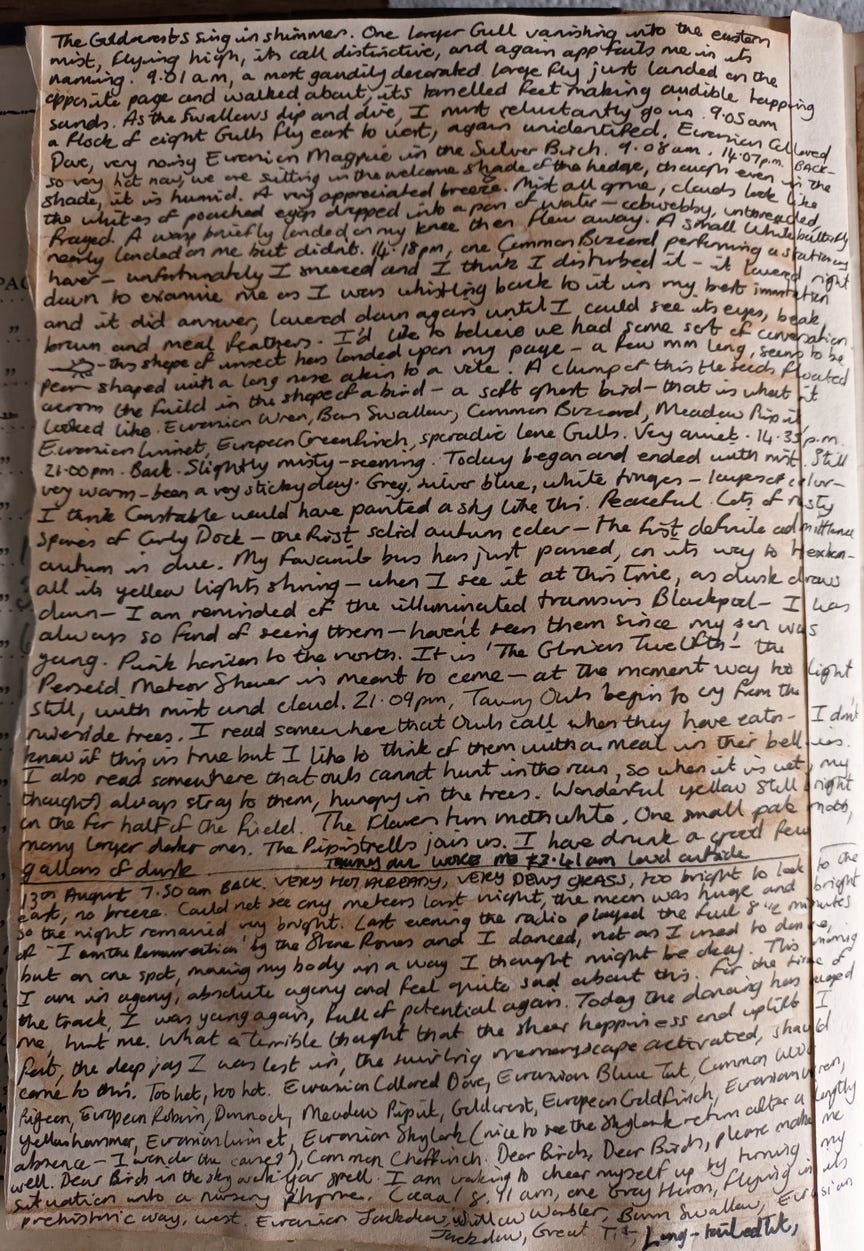 The Goldcrests sing in shimmer. One larger Gull vanishing into the eastern
mist, flying high, its call distinctive, and again appeals me in its
naming. 9.01 a.m, a most gaudily decorated large fly just landed on the
opposite page and walked about, its tasselled feet making audible tapping
sounds. As the Swallows dip and dive, I must reluctantly go in. 9.05am
a flock of eight Gulls fly east to west, again unidentified, Eurasian Collared
Dove, very noisy Eurasian Magpie in the Silver Birch. 9.08am. 14.07pm. BACK-
so very hot now, we are sitting in the welcome shade of the hedge, though even in the
shade, it is humid. A very appreciated breeze. Mist all gone, clouds look like
the whites of poached eggs dropped into a pan of water - cobwebby, unthreaded,
frayed. A wasp briefly landed on my knee then flew away. A small White butterfly
nearly landed on me but didn't. 14.18pm, one Common Buzzard performing a stationary
hover - unfortunately I sneezed and I think I disturbed it - it lowered right
down to examine me as I was whistling back to it in my best imitation
and it did answer, lowered down again until I could see its eyes, beak,
brown and meal feathers. I'd like to believe we had some sort of conversation.
- this shape of insect has landed upon my page - a few mm long, seems to be
pear shaped with a long nose akin to a vole. A clump of thistle seeds floated
across the field in the shape of a bird - a soft ghost bird - that is what it
looked like. Eurasian Wren, Barn Swallow, Common Buzzard, Meadow Pipit,
Eurasian Linnet, European Greenfinch, sporadic lone Gulls. Very quiet. 14.35p.m.
21.00pm. Back. Slightly misty-seeming. Today began and ended with mist. Still
very warm - been a very sticky day. Grey, silver blue, white tinges - layers of colour -
I think Constable would have painted a sky like this. Peaceful. Lots of rusty
spires of Curly Dock - the first solid autumn color - the first definite admittance
autumn is due. My favourite bus has just passed, on its way to Hexham -
all its yellow lights shining - when I see it at this time, as dusk draws
down - I am reminded of the illuminated trams in Blackpool - I was
always so fond of seeing them - haven't seen them since my son was
young. Pink horizon to the north. It is 'The Glorious Twelfth' - the
Perseid Meteor Shower is meant to come - at the moment way too light
still, with mist and cloud. 21.09pm, Tawny Owls begin to cry from the
riverside trees. I read somewhere that Owls call when they have eaten - I don't
know if this is true but I like to think of them with a meal in their bellies.
I also read somewhere that owls cannot hunt in the rain, so when it is wet, my
thoughts always stray to them, hungry in the trees. Wonderful yellow still right
on the far half of the field. The Flowers turn moth white. One small pale moth,
many larger darker ones. The Pipistrelles join us. I have drunk a good few
gallons of dusk. Tawny owl woke me 2.41am loud outside
13th August 7.50am BACK. VERY HOT ALREADY, VERY DEWY GRASS, too bright to look to the
east, no breeze. Could not see any meteors last night, the moon was huge and bright
so the night remained very bright. Last evening the radio played the full 8 1/2 minutes
of 'I am the Resurrection' by the Stone Roses and I danced, not as I used to dance,
but on one spot, moving my body in a way I thought might be okay. This morning
I am in agony, absolute agony and feel quite sad about this. For the time of
the track, I was young again, full of potential again. Today the dancing has caged
me, hurt me. What a terrible thought that the sheer happiness and uplift I
felt, the deep joy I was lost in, the swirling memoryscape activated, should
come to this. Too hot, too hot. Eurasian Collared Dove, Eurasian Blue Tit, Common Wood
Pigeon, European Robin, Dunnock, Meadow Pipit, Goldcrest, European Goldfinch, Eurasian Wren,
Yellowhammer, Eurasian Linnet, Eurasian Skylark (nice to see the Skylark return after a lengthy
absence - I wonder the cause?), Common Chaffinch. Dear Birds, Dear Birds, please make me
well. Dear Birds in the sky work your spell. I am waking to cheer myself up by turning my
situation into a nursery rhyme. Caaa! 8.41am, one Grey Heron, flying in its
prehistoric way, west. Eurasian Jackdaw, Willow Warbler, Barn Swallow, Eurasian
Jackdaw, Great Tit - Long-tailed Tit,